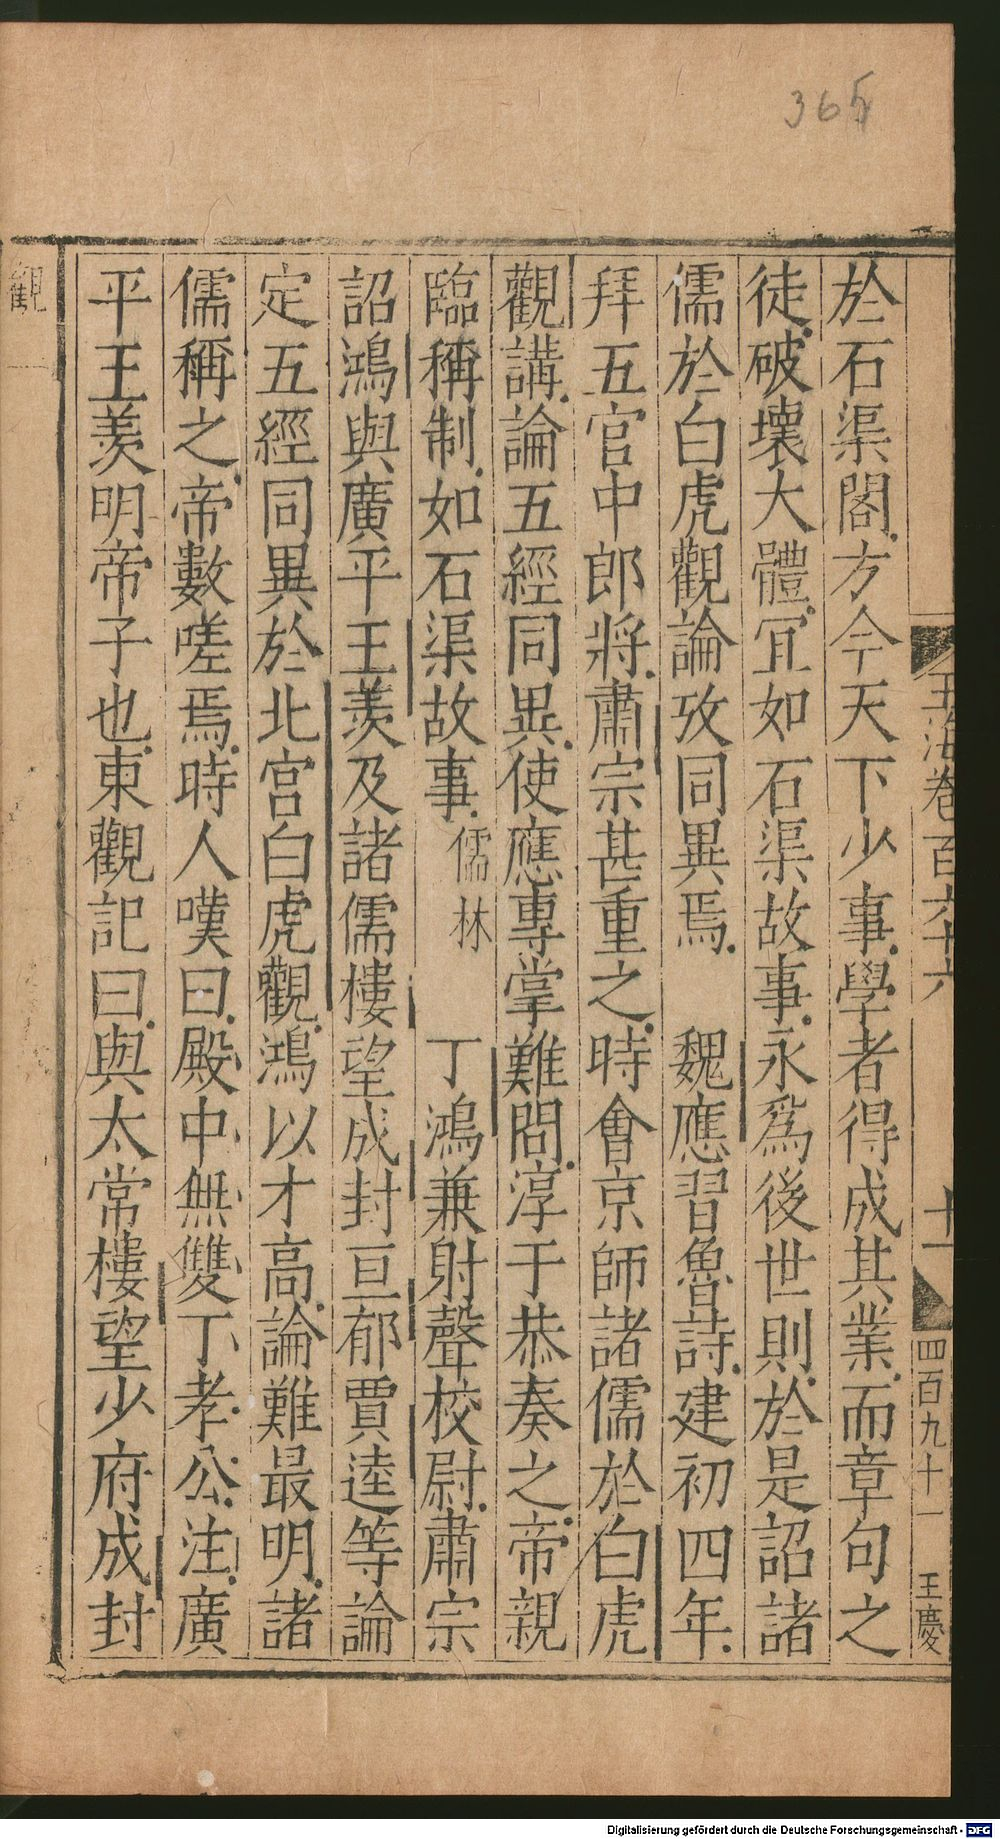 365
玉海卷百六十六
十一
四百九十一
王慶
於石渠閣方今天下少事學者得成其業而章句之
徒破壞大體冝如石渠故事永爲後世則於是詔諸
儒於白虎觀論攷同異焉 魏應習魯詩建初四年
拜五官中郎將肅宗甚重之時會京師諸儒於白虎
觀講論五經同異使應專掌難問淳于恭奏之帝親
臨稱制如石渠故事儒林 丁鴻兼射聲校尉肅宗
詔鴻與廣平王羨及諸儒樓望成封亘郁賈逵等論
定五經同異於北宮白虎觀鴻以才高論難最明諸
儒稱之帝數嗟焉時人嘆曰殿中無雙丁孝公注廣
平王羨明帝子也東觀記曰與太常樓望少府成封
觀
Digitalisierung gefördert durch die Deutsche Forschungsgemeinschaft - DFG